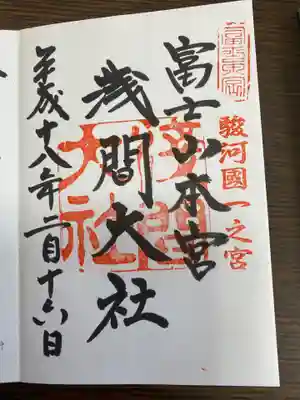 駿河國一之宮
富士山本宮
浅間大社
平成十八年二月十六日
浅間大社